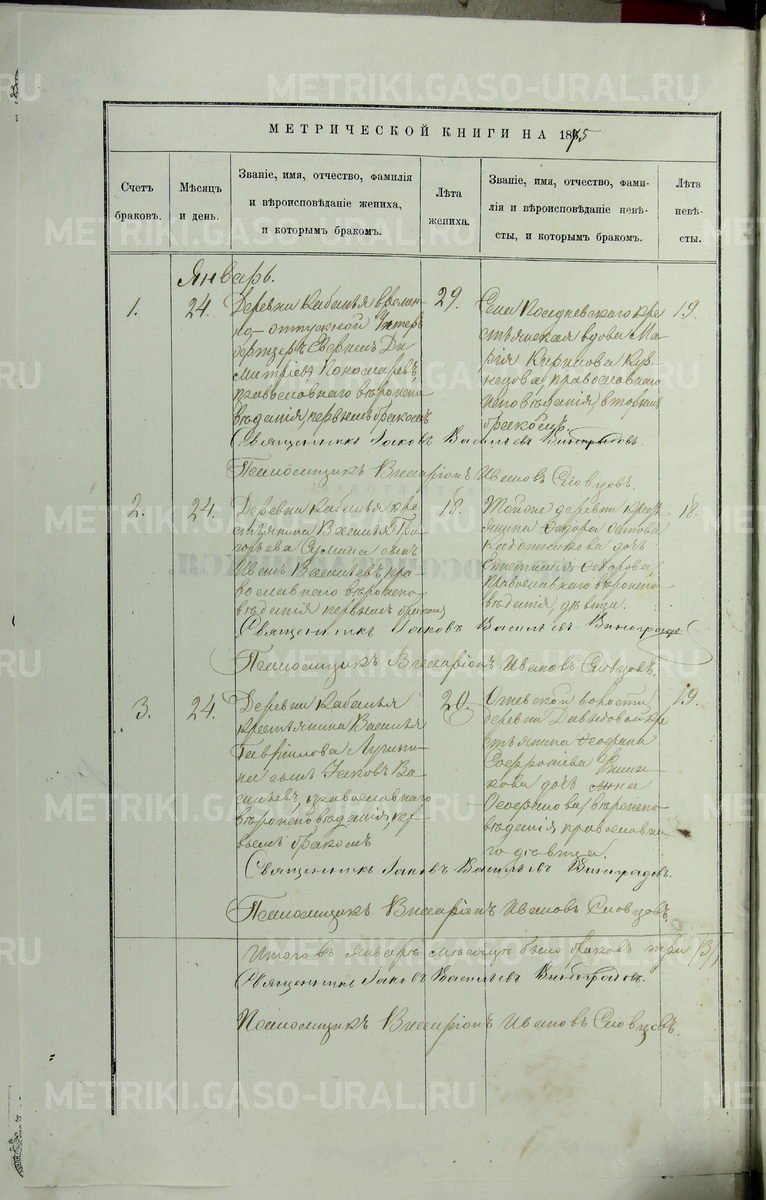 METRIKI.GASO-URAL.RU
МЕТРИЧЕСКОЙ КНИГИ НА 1875
Счетъ браковъ.
Мѣсяцъ и день.
Званіе, имя, отчество, фамилія и вѣроисповѣданіе жениха, и которымъ бракомъ.
Лѣта жениха.
Званіе, имя, отчество, фамилія и вѣроисповѣданіе невѣсты, и которымъ бракомъ.
Лѣта невѣсты.
Январь.
1.
24.
Деревни Кабанья времен-
но-отпускной Унтеръ
Димитріевъ Пономаревъ
православнаго вѣроиспо-
вѣданія, первымъ бракомъ
29.
Села
крестьянская вдова Ма-
рія Кирилова Куз-
нецова, православнаго
исповѣданія, вторымъ
бракомъ.
19.
Священникъ Іаковъ Васильевъ Виноградовъ.
Псаломщикъ Виссаріонъ Ивановъ Словцовъ.
2.
24.
Деревни Кабанья кре-
стьянина Василья Гри-
горьева сынъ
Иванъ Васильевъ, пра-
вославнаго вѣроиспо-
вѣданія первымъ бракомъ
18.
Тойже деревни крест-
янина Ѳедора
дочь
Ѳедорова,
православнаго вѣроиспо-
вѣданія, дѣвица.
18.
Священникъ Іаковъ Васильевъ Виноградовъ
Псаломщикъ Виссаріонъ Ивановъ Словцовъ.
3.
24.
Деревни Кабанья
крестьянина Василья
Гавріилова
сынъ Іаковъ Ва-
сильевъ, православнаго
вѣроисповѣданія, пер-
вымъ бракомъ
20.
Огневской волости,
деревни Давыдовой кре-
стьянина Ѳеофана
Софронова
дочь Анна
Ѳеофанова, вѣроиспо-
вѣданія православна-
го дѣвица.
19.
Священникъ Іаковъ Васильевъ Виноградовъ.
Псаломщикъ Виссаріонъ Ивановъ Словцовъ.
Итого въ Январѣ мѣсяцѣ было браковъ три (3)
Священникъ Іаковъ Васильевъ Виноградовъ.
Псаломщикъ Виссаріонъ Ивановъ Словцовъ.